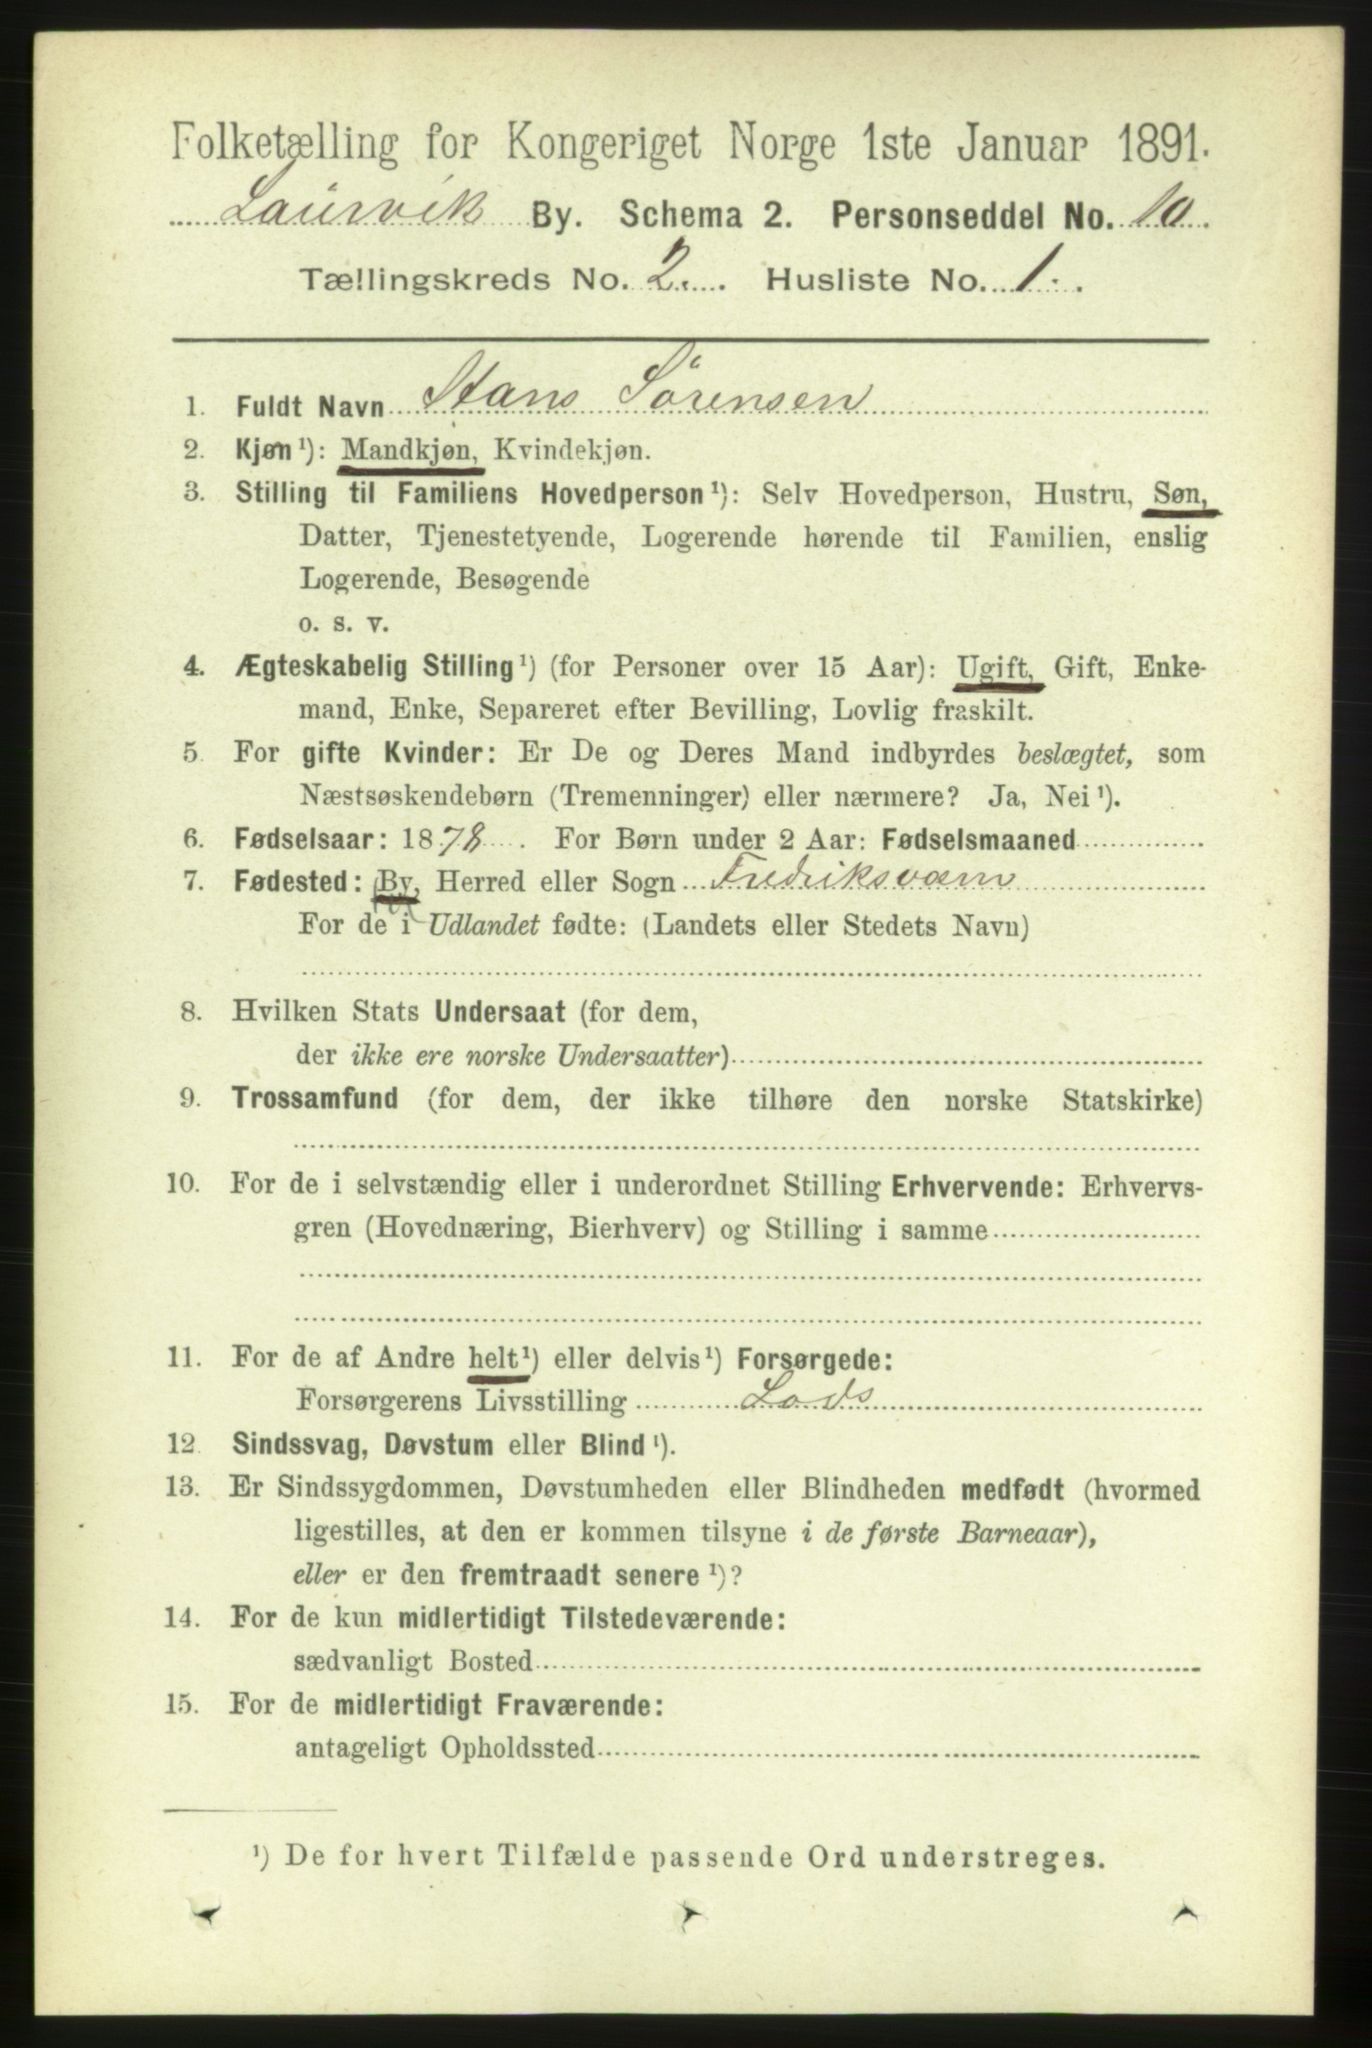 Folketælling for Kongeriget Norge 1ste Januar 1891.
Laurvik By. Schema 2. Personseddel No. 10.
Tællingskreds No. 2. Husliste No. 1.
1. Fuldt Navn Hans Sörensen
2. Kjøn¹): Mandkjøn, Kvindekjøn.
3. Stilling til Familiens Hovedperson¹): Selv Hovedperson, Hustru, Søn,
Datter, Tjenestetyende, Logerende hørende til Familien, enslig
Logerende, Besøgende
o. s. v.
4. Ægteskabelig Stilling¹) (for Personer over 15 Aar): Ugift, Gift, Enke-
mand, Enke, Separeret efter Bevilling, Lovlig fraskilt.
5. For gifte Kvinder: Er De og Deres Mand indbyrdes beslægtet, som
Næstsøskendebørn (Tremenninger) eller nærmere? Ja, Nei¹).
6. Fødselsaar: 1878. For Børn under 2 Aar: Fødselsmaaned
7. Fødested: By, Herred eller Sogn Fredriksværn
For de i Udlandet fødte: (Landets eller Stedets Navn)
8. Hvilken Stats Undersaat (for dem,
der ikke ere norske Undersaatter)
9. Trossamfund (for dem, der ikke tilhøre den norske Statskirke)
10. For de i selvstændig eller i underordnet Stilling Erhvervende: Erhvervs-
gren (Hovednæring, Bierhverv) og Stilling i samme
11. For de af Andre helt¹) eller delvis¹) Forsørgede:
Forsørgerens Livsstilling Lods
12. Sindssvag, Døvstum eller Blind¹).
13. Er Sindssygdommen, Døvstumheden eller Blindheden medfødt (hvormed
ligestilles, at den er kommen tilsyne i de første Barneaar),
eller er den fremtraadt senere¹)?
14. For de kun midlertidigt Tilstedeværende:
sædvanligt Bosted
15. For de midlertidigt Fraværende:
antageligt Opholdssted
¹) De for hvert Tilfælde passende Ord understreges.